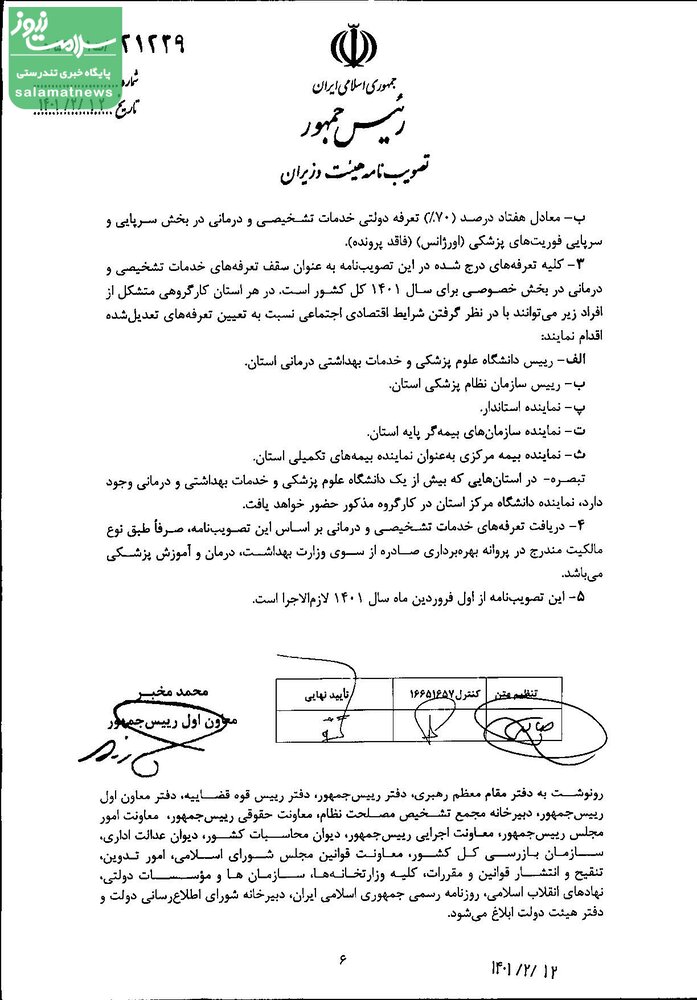 سلامت نیوز
پایگاه خبری تندرستی
salamatnews
۲۱۲۲۹
شماره
تاریخ ۱۴۰۱/۲/۱۲
جمهوری اسلامی ایران
رئیس جمهور
تصویب نامه هیئت وزیران
ب- معادل هفتاد درصد (۷۰٪) تعرفه دولتی خدمات تشخیصی و درمانی در بخش سرپایی و
سرپایی فوریت‌های پزشکی (اورژانس) (فاقد پرونده).
۳- کلیه تعرفه‌های درج شده در این تصویب‌نامه به عنوان سقف تعرفه‌های خدمات تشخیصی و
درمانی در بخش خصوصی برای سال ۱۴۰۱ کل کشور است. در هر استان کارگروهی متشکل از
افراد زیر می‌توانند با در نظر گرفتن شرایط اقتصادی اجتماعی نسبت به تعیین تعرفه‌های تعدیل‌شده
اقدام نمایند:
الف- رییس دانشگاه علوم پزشکی و خدمات بهداشتی درمانی استان.
ب- رییس سازمان نظام پزشکی استان.
پ- نماینده استاندار.
ت- نماینده سازمان‌های بیمه‌گر پایه استان.
ث- نماینده بیمه مرکزی به‌عنوان نماینده بیمه‌های تکمیلی استان.
تبصره- در استان‌هایی که بیش از یک دانشگاه علوم پزشکی و خدمات بهداشتی و درمانی وجود
دارد، نماینده دانشگاه مرکز استان در کارگروه مذکور حضور خواهد یافت.
۴- دریافت تعرفه‌های خدمات تشخیصی و درمانی بر اساس این تصویب‌نامه، صرفاً طبق نوع
مالکیت مندرج در پروانه بهره‌برداری صادره از سوی وزارت بهداشت، درمان و آموزش پزشکی
می‌باشد.
۵- این تصویب‌نامه از اول فروردین ماه سال ۱۴۰۱ لازم‌الاجرا است.
تنظیم متن
کنترل ۱۶۶۵۱۶۵۷
تأیید نهایی
محمد مخبر
معاون اول رییس‌جمهور
رونوشت به دفتر مقام معظم رهبری، دفتر رییس‌جمهور، دفتر رییس قوه قضاییه، دفتر معاون اول
رییس‌جمهور، دبیرخانه مجمع تشخیص مصلحت نظام، معاونت حقوقی رییس‌جمهور، معاونت امور
مجلس رییس‌جمهور، معاونت اجرایی رییس‌جمهور، دیوان محاسبات کشور، دیوان عدالت اداری،
سازمان بازرسی کل کشور، معاونت قوانین مجلس شورای اسلامی، امور تدوین،
تنقیح و انتشار قوانین و مقررات، کلیه وزارتخانه‌ها، سازمان ها و مؤسسات دولتی،
نهادهای انقلاب اسلامی، روزنامه رسمی جمهوری اسلامی ایران، دبیرخانه شورای اطلاع‌رسانی دولت و
دفتر هیئت دولت ابلاغ می‌شود.
۶
۱۴۰۱/۲/۱۲